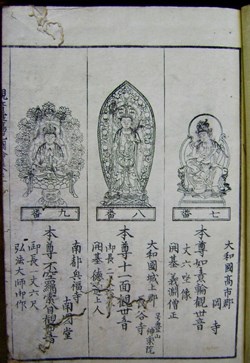 七番
大和國高市郡
岡寺
本尊如意輪觀世音
丈六
開基義淵僧正
八番
大和國城上郡
長谷寺
本尊十一面觀世音
御長二丈六尺
開基德道上人
九番
南都興福寺
南圓堂
本尊不空羂索觀世音
御長一丈六尺
弘法大師御作